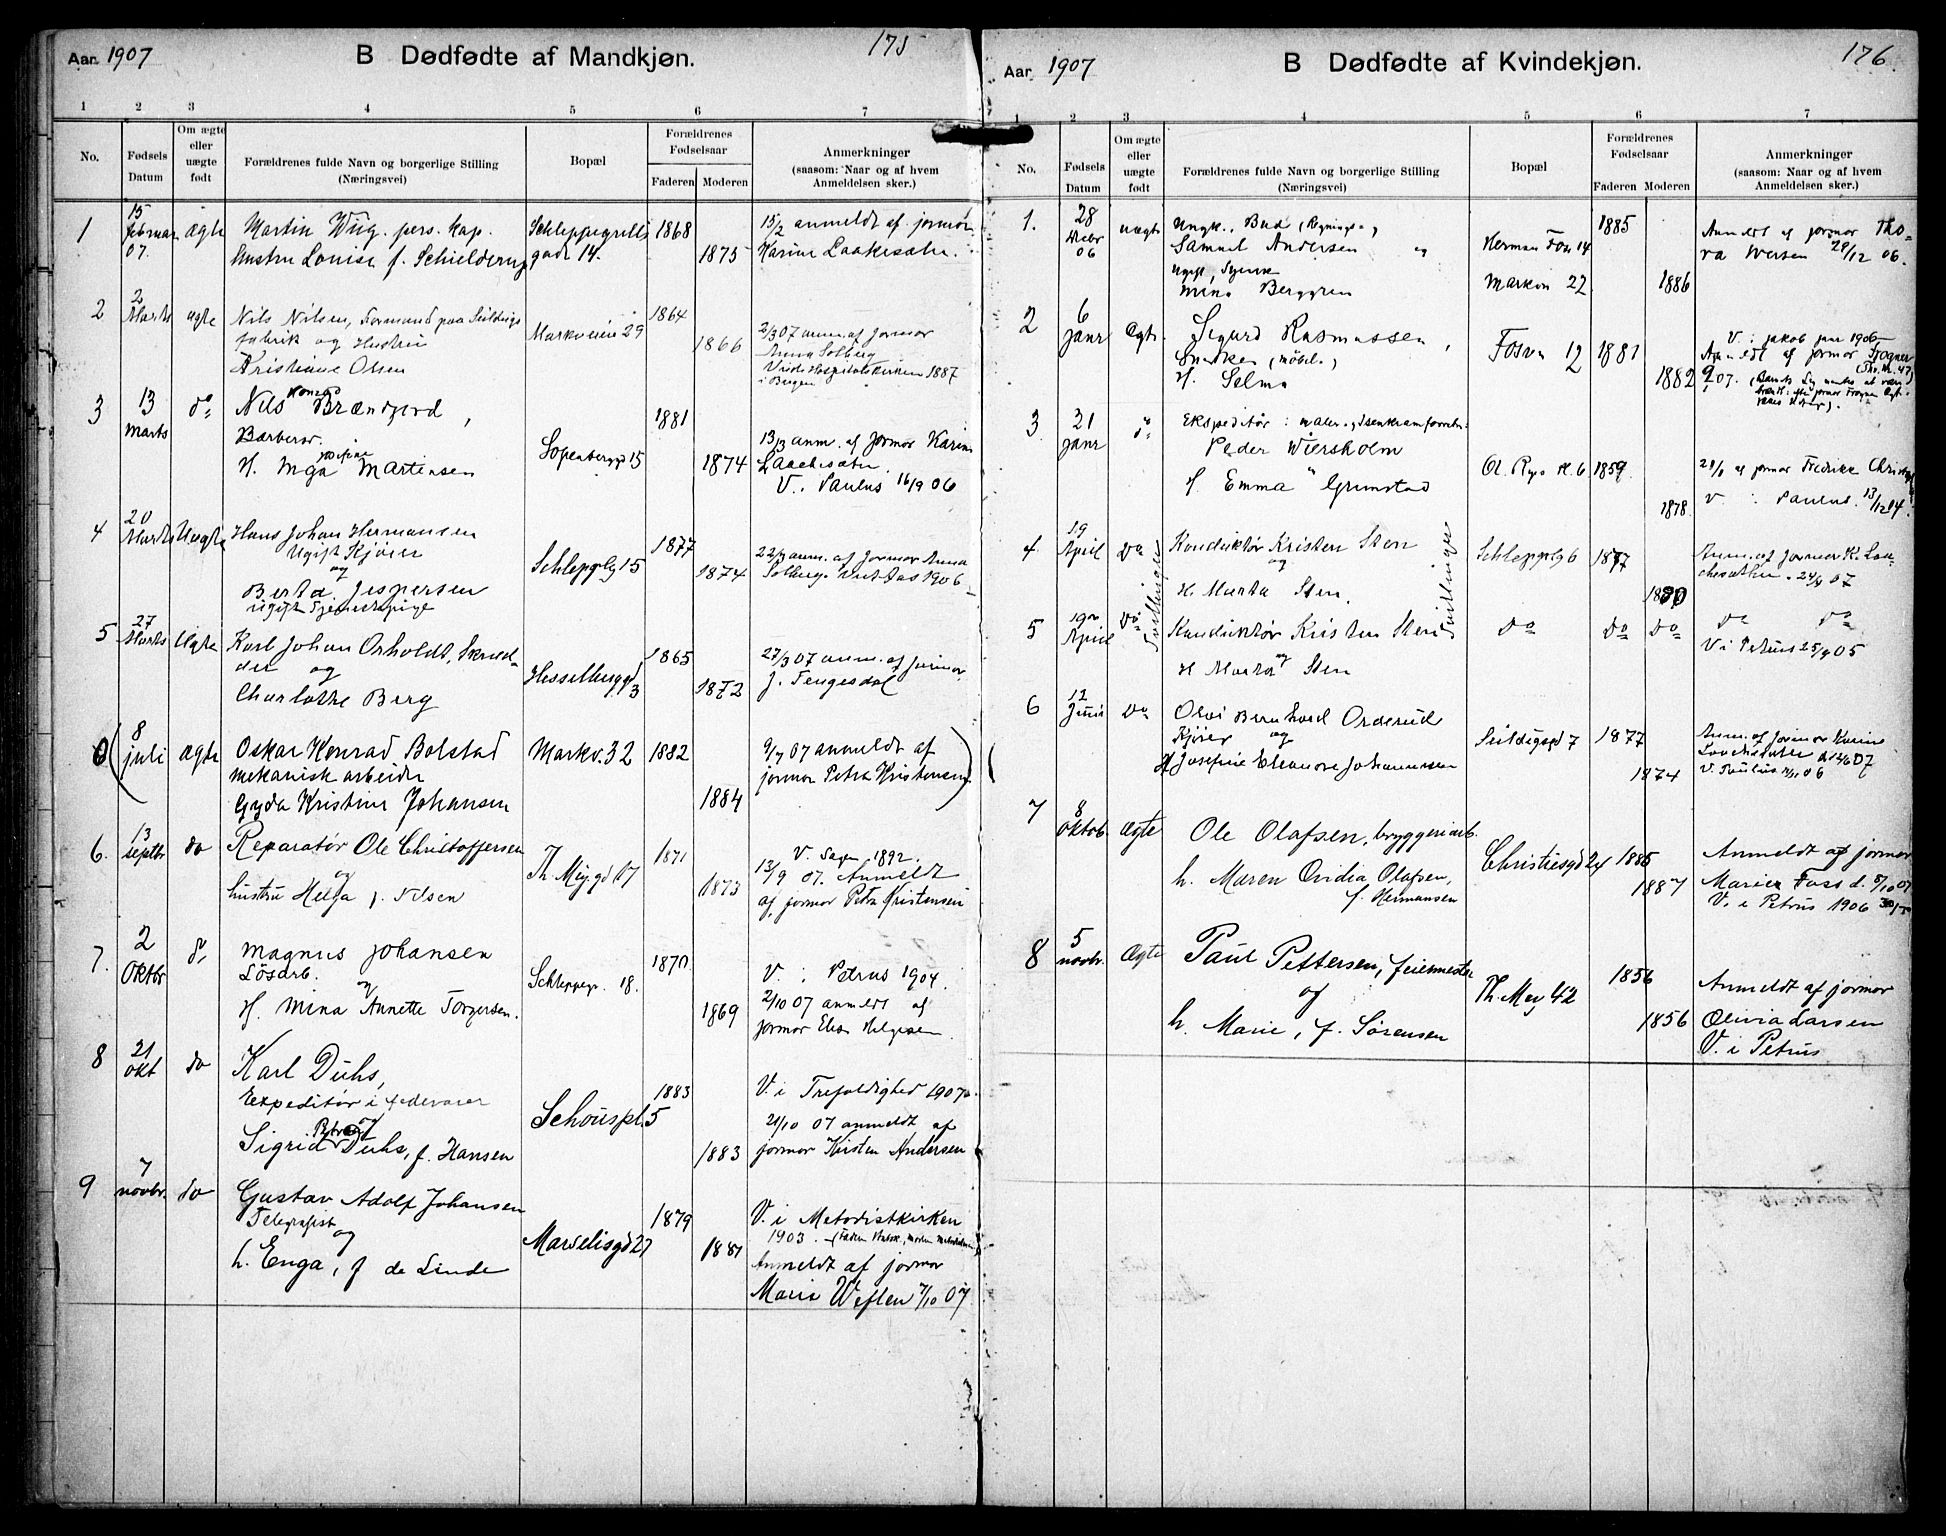 Aar. 1907
B Dødfødte af Mandkjøn.
175
1 2 3 4 5 6 7
No.
Fødsels Datum
Om ægte eller uægte født
Forældrenes fulde Navn og borgerlige Stilling (Næringsvei)
Bopæl
Forældrenes Fødselsaar
Faderen Moderen
Anmerkninger
(saasom: Naar og af hvem Anmeldelsen sker.)
1 15 februar 07. ægte Martin Wiig. pers. kap. Schleppegrells 1868 15/2 anmeldt af jormor
Hustru Louise f. Schielderup gade 14. 1875 Karine Laakesæter.
2 2 Marts ægte Nils Nilsen, Formand paa Seildugs Markveien 29 1864
fabrik og Hustru 1866 2/3 07 anm. af Jormor
Kristiane Olsen Anna Solberg
Viede Hospitalskirken 1887
i Bergen
3 13 Marts do Nils Konrad Brændjord, 1881
Barberer.
H. Inga Josefine Martinsen Sofienberggd 15 1874 13/3 anm. af jormor Karine
Laachesæter.
V. i Paulus 16/9 06
4 20 Marts Uægte Hans Johan Hermansen 1877
Ugift Kjører
og Schleppg 15 1874 22/3 anm. af Jormor Anna
Solberg.
Berta Jespersen
ugift Tjenestepige
5 27 Marts Uægte Karl Johan Orholdt, Skræd- 1865
der og Hesselbergd 3 1872 27/3 07 anm. af jormor
Charlotte Berg J. Tengesdal
0 ( 8 juli ægte Oskar Konrad Bolstad Markv. 32 1882 9/7 07 anmeldt af
mekanisk arbeider jormor Petra Kristensen )
Gyda Kristine Johansen 1884
6. 13 septbr do Reparatør Ole Christoffersen Th. Meyg. 17 1871 V. Sagen 1892.
og 1873 13/9 07. Anmeldt
hustru Helga f. Nilsen af jormor Petra Kristensen
7. 2 Oktbr do Magnus Johansen 1870
Løsarb. Schleppegr. 18. V. i Petrus 1904.
og
H. Mina Annette Torgersen. 1869 2/10 07 anmeldt af
jormor Elen Helgesen
8 21 okt do Karl Duhs,
Expeditør i 1883 V. i Trefoldighed 1907.
og Schouspl. 5 21/10 07 anmeldt af
Sigrid Duhs, f. Hansen 1883 jormor Kirsten Andersen
9 7 novbr. do Gustav Adolf Johansen 1879 V. i Metodistkirken
Telegrafist 1903.
og Marselisgd 27 1881 Anmeldt af jormor
h. Enga, f de Linde Marie Weflen 7/10 07.
Aar 1907
B Dødfødte af Kvindekjøn.
176.
1 2 3 4 5 6 7
No.
Fødsels Datum
Om ægte eller uægte født
Forældrenes fulde Navn og borgerlige Stilling (Næringsvei)
Bopæl
Forældrenes Fødselsaar
Faderen Moderen
Anmerkninger
(saasom: Naar og af hvem Anmeldelsen sker.)
1. 28 06 uægte Ungk., Bud 1885
Samuel Andersen og Herman Foss 14 Anmeldt af jormor Tho-
ra Iversen 29/12 06.
Mina Berggren Markvn 22 1886
2 6 janr Ægte Sigurd Rasmussen,
Snedker (møbel.) Fosvn 12 1881 V. i Jakob
Anmeldt af jormor Frogner
H. Selma 1882
3 21 janr do Ekspeditør i maler- og isenkramforretn.
Peder Wiersholm
H. Emma Grimstad Ol. Rys pl. 6 1859 af jormor Fredrikke
1878. V. i Paulus. 13/12 04.
4 19 April Do Tvillinger Konduktør Kristen Sten Schleppg 6 1877 Anm. af Jormor K. Laa-
og chesæther. 24/4 07
H. Marta Sten. 1880
5 19de April Do Tvillinger Konduktør Kristen Sten Do Do Do Do Do
og V. i Petrus 25/4 05
H Marta Sten
6 12 Juni Do Olai Bernhard Orderud
Kjører og Seildugsgd 7 1877 Anm. af Jormor Karine
H Josefine Eleonore Johannesen 1874
V. Paulus
7 8 Oktob. Ægte Ole Olafsen, bryggeriarb.
h. Maren Ovidia Olafsen, Christiesgd 24 1885 Anmeldt af jormor
f. Hermansen 1887 Marie Foss d. 8/10 07
V. i Petrus 1906
8 5 novbr. Ægte Paul Pettersen, feiermester
og Th. Mey 42 1856 Anmeldt af jormor
h. Marie, f. Sørensen 1856 Olivia Larsen
V. i Petrus